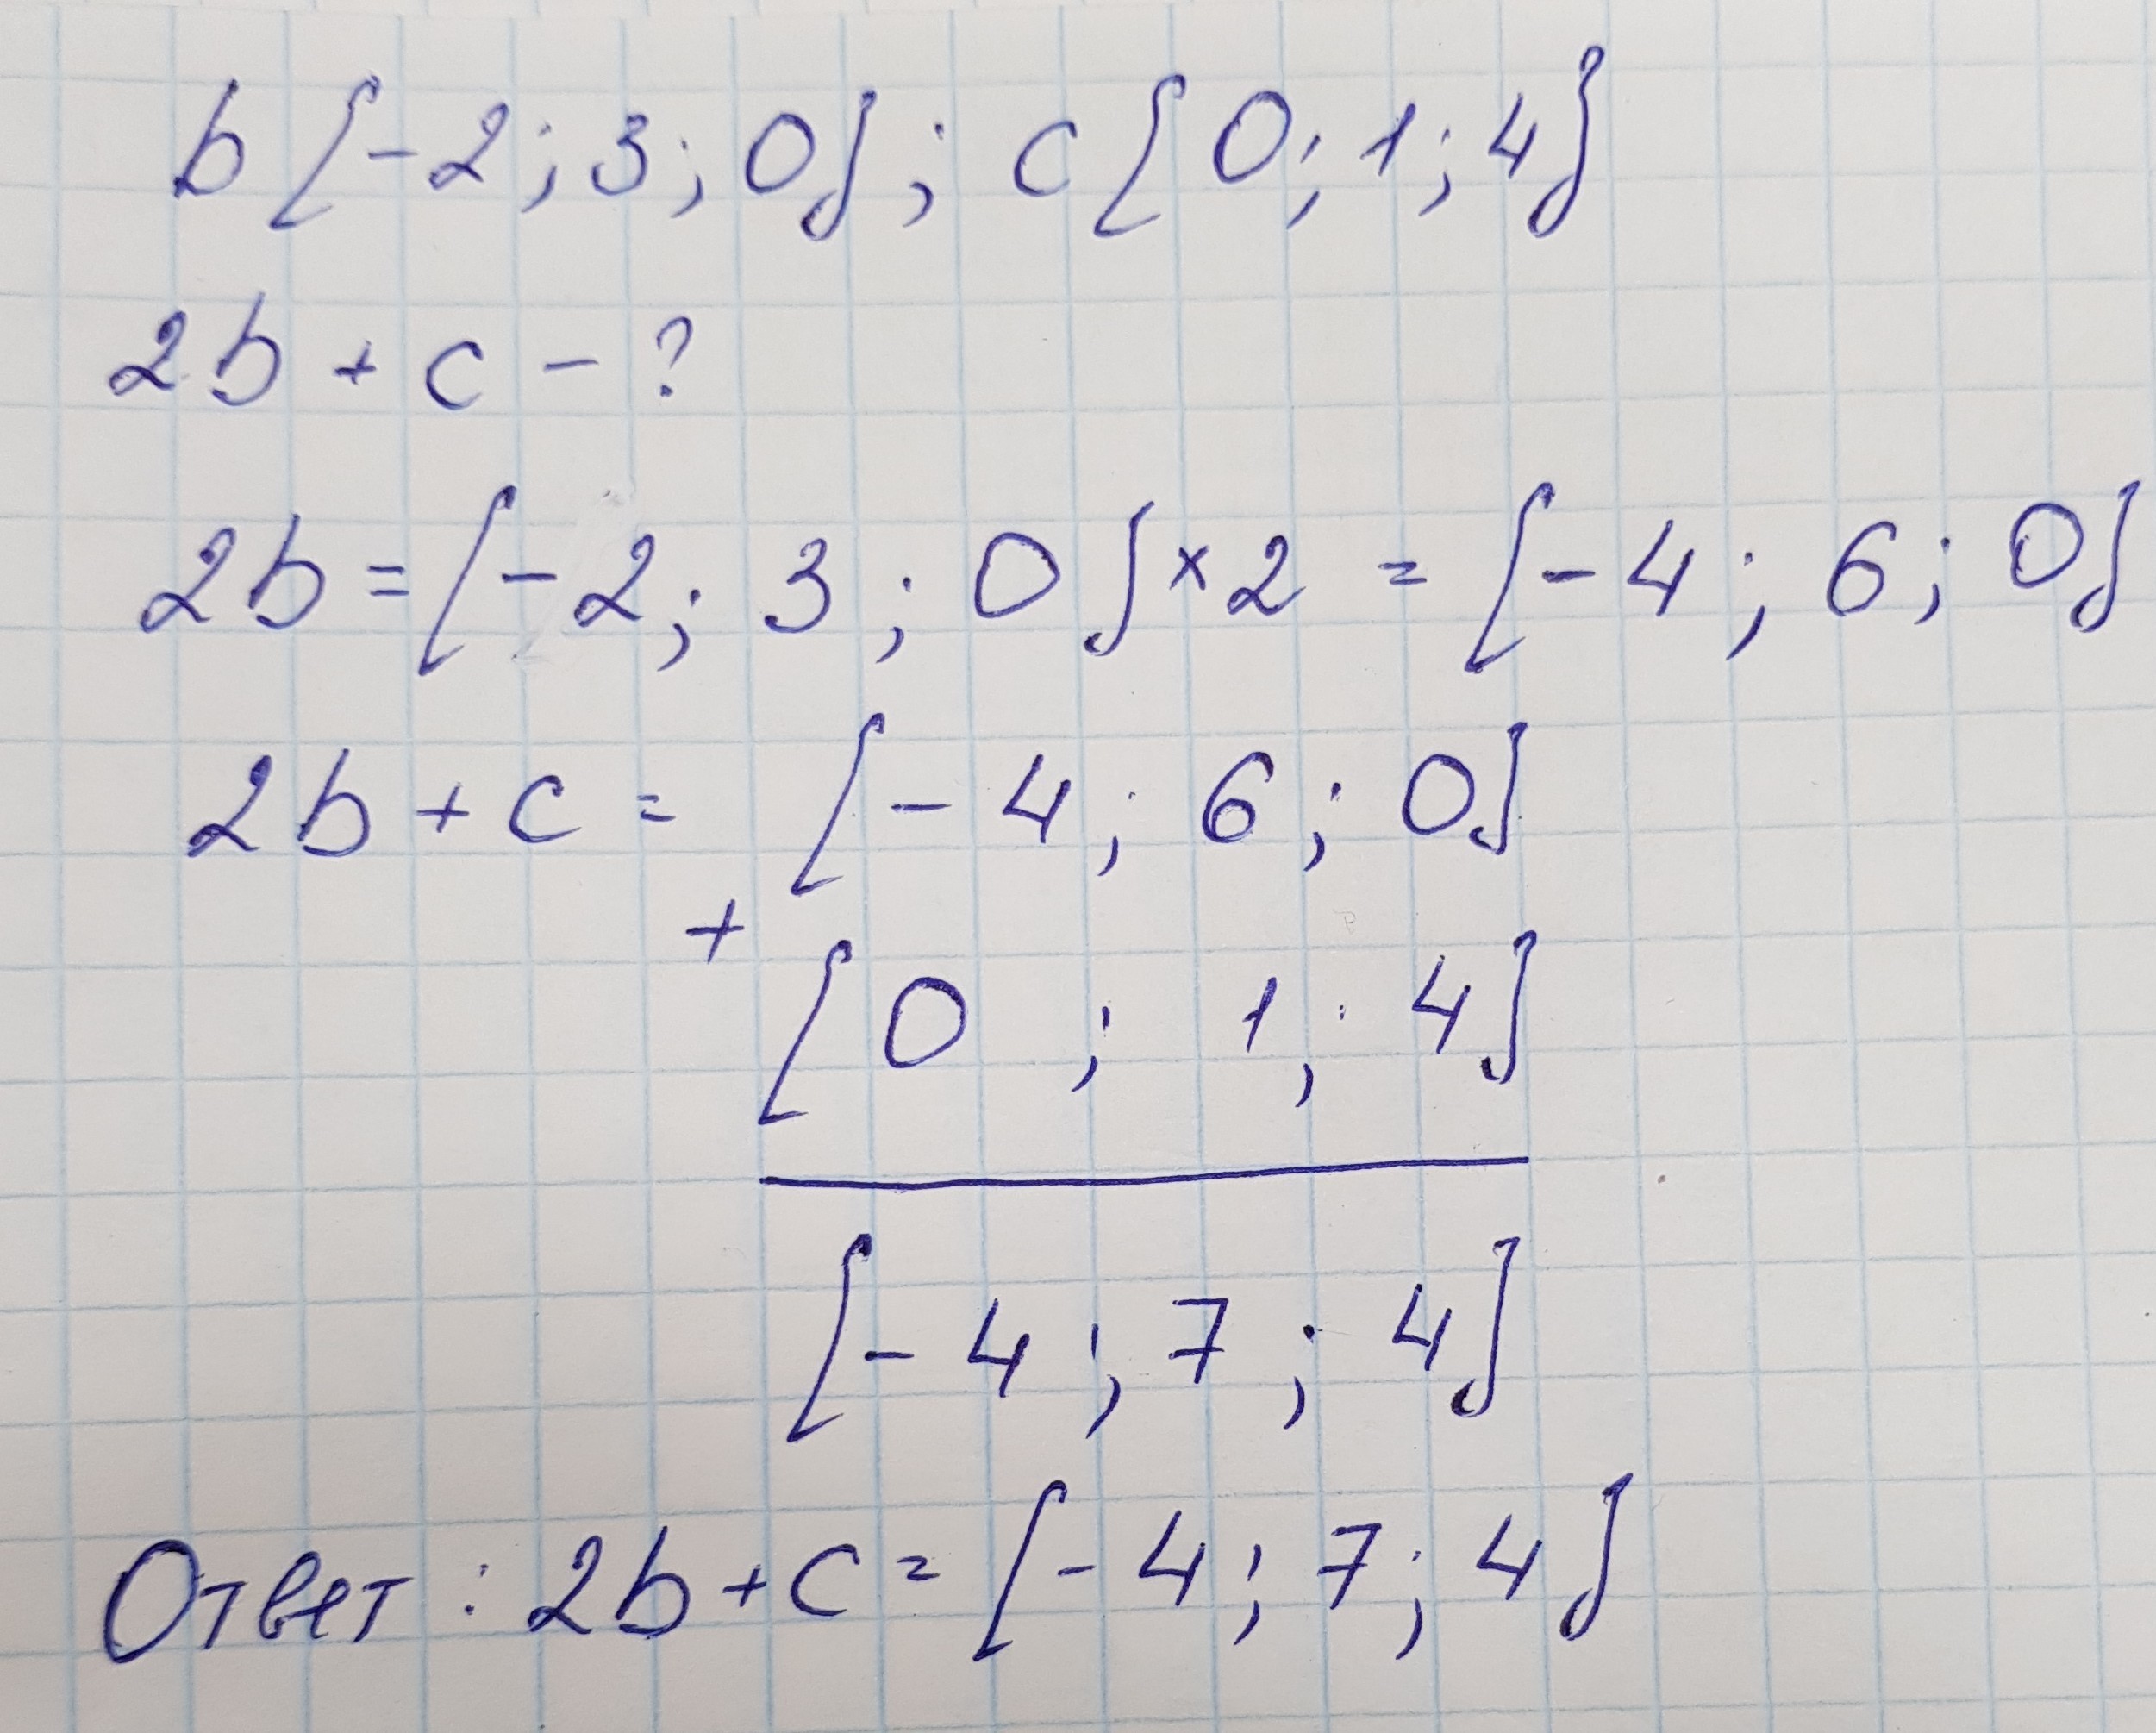 b[-2;3;0]; c[0;1;4}
2b + c - ?
2b = [-2; 3; 0] × 2 = [-4; 6; 0]
2b + c = [-4; 6; 0]
+
[0 ; 1; 4]
[-4; 7; 4]
Ответ: 2b + c = [-4; 7; 4]